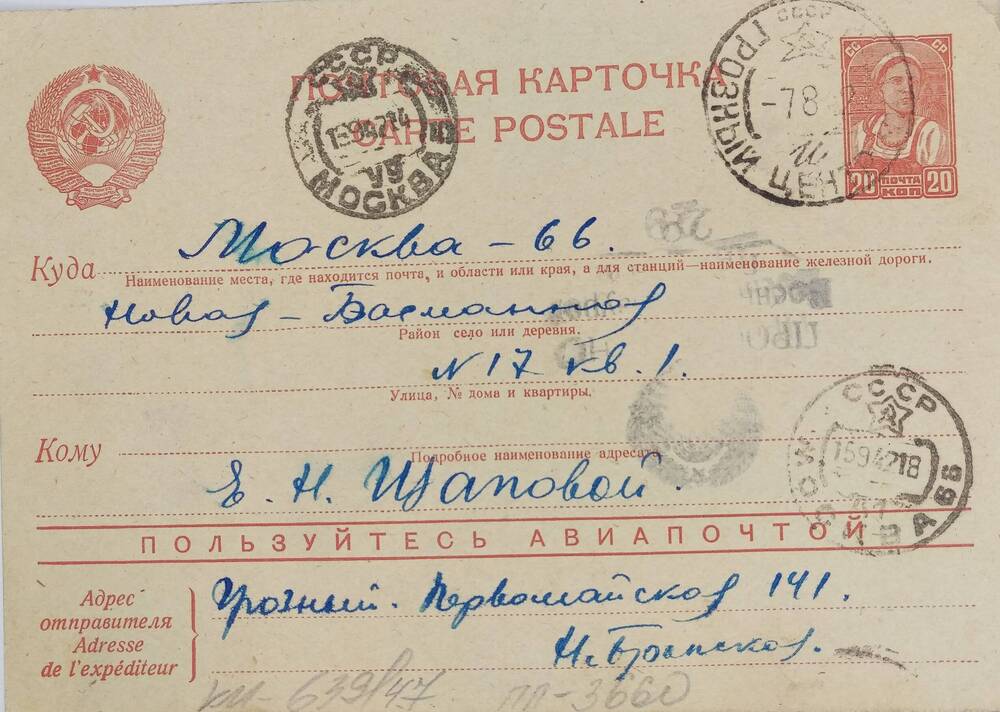 ПОЧТОВАЯ КАРТОЧКА
CARTE POSTALE
СССР
15942 14
МОСКВА
СССР
ГРОЗНЫЙ ЦЕНТР
-7 8
СС СР
20 ПОЧТА КОП 20
Куда Москва - 66.
Наименование места, где находится почта, и области или края, а для станций—наименование железной дороги.
Новая - Басманная
Район село или деревня.
N 17 кв. 1.
Улица, № дома и квартиры.
Кому
Подробное наименование адресата
Е. Н. Щаповой
СССР
15942 18
МОСКВА 66
ПОЛЬЗУЙТЕСЬ АВИАПОЧТОЙ
Адрес отправителя
Adresse de l'expéditeur
Грозный. Первомайская 141.
КП-639/47 ПП-3660